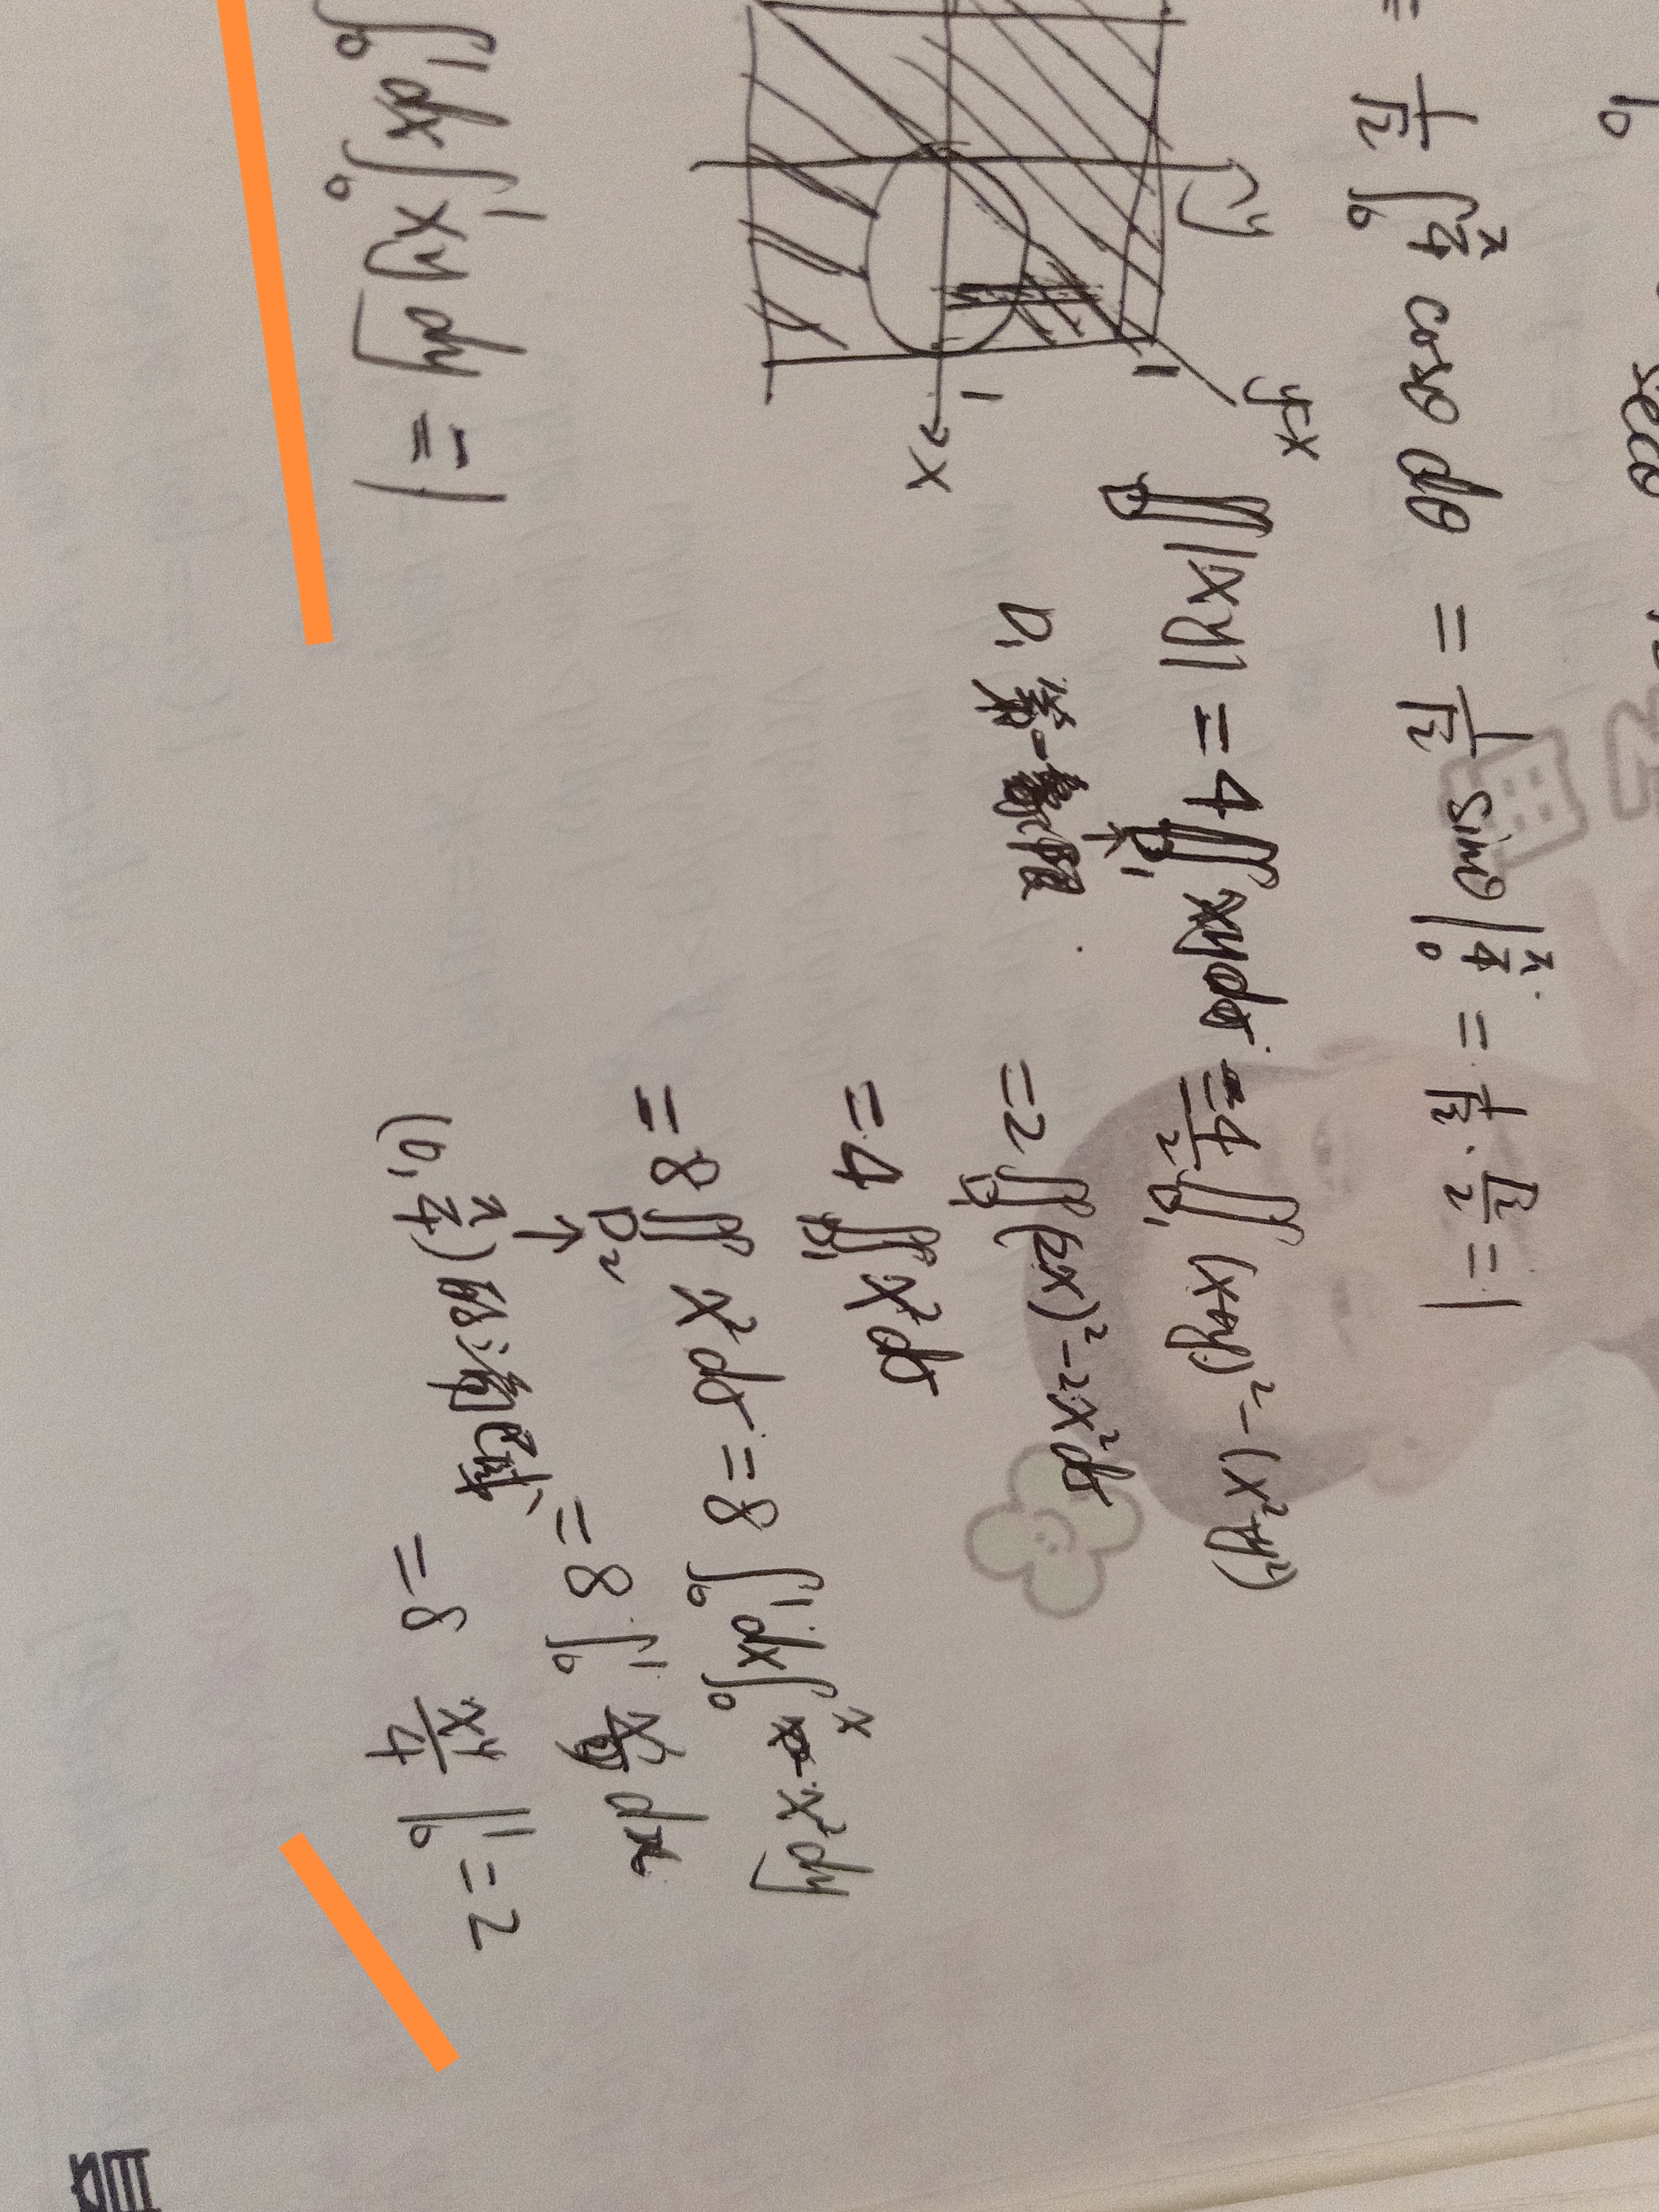 = 1/√2 ∫₀^{π/4} cosθ dθ = 1/√2 sinθ |₀^{π/4} = 1/√2 · √2/2 = 1
y
y=x
1
1
x
∬_D |xy| = 4 ∬_{D₁} xydσ = 4/2 ∬_{D₁} (x+y)² - (x²+y²)
D₁ 第一象限
= 2 ∬_{D₁} (2x)² - 2x² dσ
= 4 ∬_{D₁} x² dσ
= 8 ∬_{D₂} x² dσ = 8 ∫₀¹ dx ∫₀ˣ x² dy
(0, π/4)
= 8 ∫₀¹ x³ dx
= 8 x⁴/4 |₀¹ = 2
∫₀¹ dx ∫₀¹ xy dy = 1